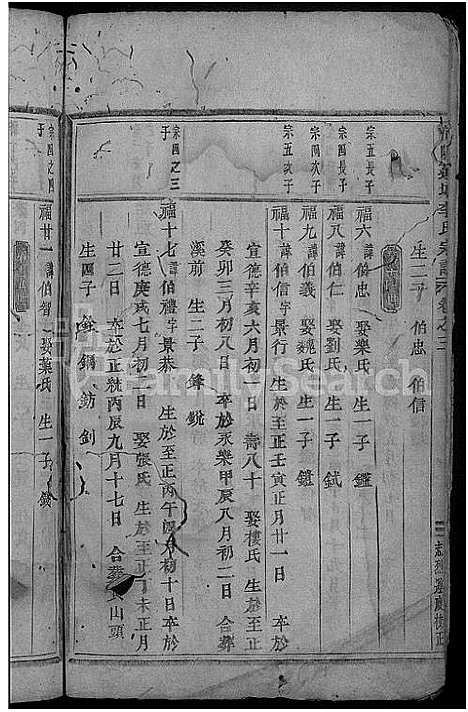 李氏宗譜 卷之三
生二子 伯忠 伯信
宗五長子
福六 諱伯忠 娶樂氏 生一子 鑑
宗四長子
福八 諱伯仁 娶劉氏 生一子 鉽
宗四次子
福九 諱伯義 娶魏氏 生一子 鐽
宗五次子
福十 諱伯信字景行 生於至正壬寅正月廿一日 卒於
宣德辛亥六月初一日 壽八十 娶樓氏 生於至正
癸卯三月初八日 卒於永樂甲辰八月初二日 合葬
溪前 生二子 鋒 銳
宗四之三子
福十七 諱伯禮字景恭 生於至正丙午四月初十日 卒於
宣德庚戌七月初日 娶張氏 生於至正丁未正月
廿二日 卒於正統丙辰九月十七日 合葬山頭
生四子 鋼 鈁 釗
宗四之四子
福廿一 諱伯智 娶葉氏 生一子
FamilySearch